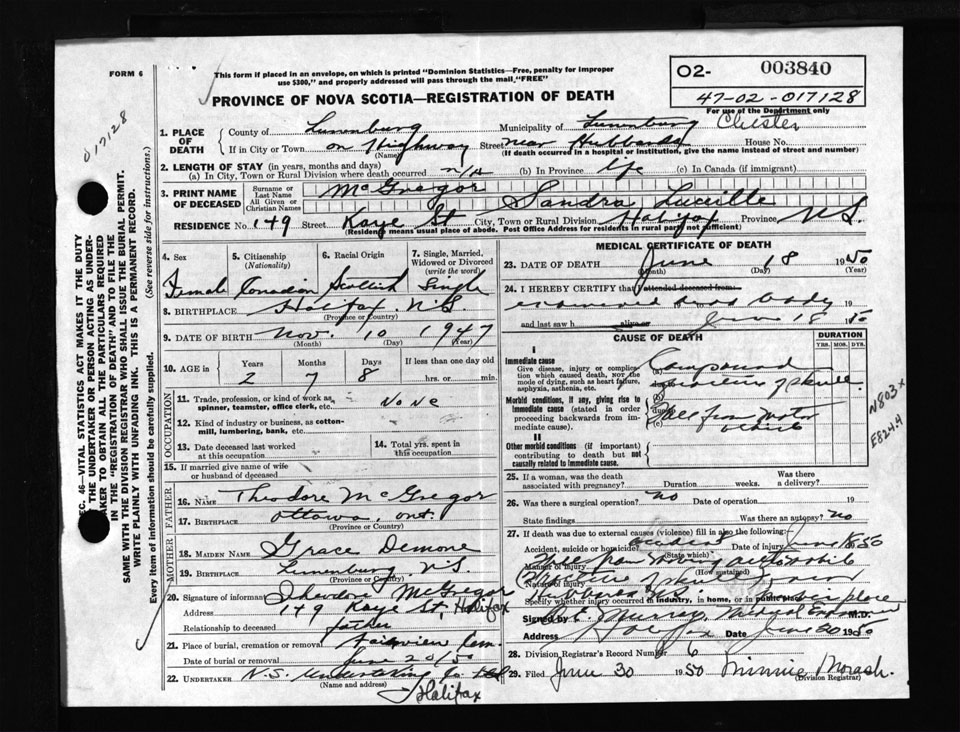 FORM 6
This form if placed in an envelope, on which is printed "Dominion Statistics—Free, penalty for improper
use $300," and properly addressed will pass through the mail, "FREE"
PROVINCE OF NOVA SCOTIA—REGISTRATION OF DEATH
O2- 003840
47-02-017128
For use of the Department only
017128
1. PLACE OF DEATH
County of Lunenburg Municipality of Lunenburg Chester
If in City or Town on Highway (Name) Street near Hubbards House No.
(If death occurred in a hospital or institution, give the name instead of street and number)
2. LENGTH OF STAY (in years, months and days)
(a) In City, Town or Rural Division where death occurred (b) In Province life (c) In Canada (if immigrant)
3. PRINT NAME OF DECEASED
Surname or Last Name McGregor
All Given or Christian Names Sandra Lucille
RESIDENCE No. 149 Street Kaye St City, Town or Rural Division Halifax Province N.S.
(Residence means usual place of abode. Post Office Address for residents in rural parts not sufficient)
4. Sex Female
5. Citizenship (Nationality) Canadian
6. Racial Origin Scottish
7. Single, Married, Widowed or Divorced (write the word) Single
8. BIRTHPLACE Halifax N.S.
(Province or Country)
9. DATE OF BIRTH Nov. 10 1947
(Month) (Day) (Year)
10. AGE in Years 2 Months 7 Days 8 If less than one day old
hrs. or min.
OCCUPATION
11. Trade, profession, or kind of work as spinner, teamster, office clerk, etc. None
12. Kind of industry or business, as cotton-mill, lumbering, bank, etc.
13. Date deceased last worked at this occupation
14. Total yrs. spent in this occupation
15. If married give name of wife or husband of deceased
FATHER
16. NAME Theodore McGregor
17. BIRTHPLACE Ottawa, Ont.
(Province or Country)
MOTHER
18. MAIDEN NAME Grace Demone
19. BIRTHPLACE Lunenburg, N.S.
(Province or Country)
20. Signature of informant Theodore McGregor
Address 149 Kaye St, Halifax
Relationship to deceased father
21. Place of burial, cremation or removal Fairview Cem.
Date of burial or removal June 20/50
22. UNDERTAKER N.S. Undertaking Co. Ltd
(Name and address)
Halifax
MEDICAL CERTIFICATE OF DEATH
23. DATE OF DEATH June 18 1950
(Month) (Day) (Year)
24. I HEREBY CERTIFY that I attended deceased from
examined dead body 19
and last saw h alive on June 18 50
CAUSE OF DEATH
DURATION
YRS. MOS. DYS.
I
Immediate cause
Give disease, injury or complication which caused death, NOT the mode of dying, such as heart failure, asphyxia, asthenia, etc.
(a) Compound
fracture of skull
Morbid conditions, if any, giving rise to immediate cause (stated in order proceeding backwards from immediate cause).
(b)
due
(c)
Fell from motor
vehicle
II
Other morbid conditions (if important) contributing to death but not causally related to immediate cause.
N803x
E824.4
25. If a woman, was the death associated with pregnancy? Duration weeks. Was there a delivery?
26. Was there a surgical operation? no Date of operation 19
State findings Was there an autopsy? no
27. If death was due to external causes (violence) fill in also the following:
Accident, suicide or homicide? accident (State which) Date of injury June 18 50
Manner of injury Fell from moving automobile
(How sustained)
Nature of injury Fracture of skull
Hubbards N.S.
Specify whether injury occurred in industry, in home, or in public place
Signed by Murray, Medical Examiner M.D.
Address Halifax Date June 20 1950
28. Division Registrar's Record Number 6
29. Filed June 30 1950 Minnie Morash.
(Division Registrar)
SEC. 46—VITAL STATISTICS ACT MAKES IT THE DUTY
OF THE UNDERTAKER OR PERSON ACTING AS UNDERTAKER TO OBTAIN ALL THE PARTICULARS REQUIRED
IN THE "REGISTRATION OF DEATH" AND TO FILE THE
SAME WITH THE DIVISION REGISTRAR WHO SHALL ISSUE THE BURIAL PERMIT.
WRITE PLAINLY WITH UNFADING INK. THIS IS A PERMANENT RECORD.
Every item of information should be carefully supplied. (See reverse side for instructions.)